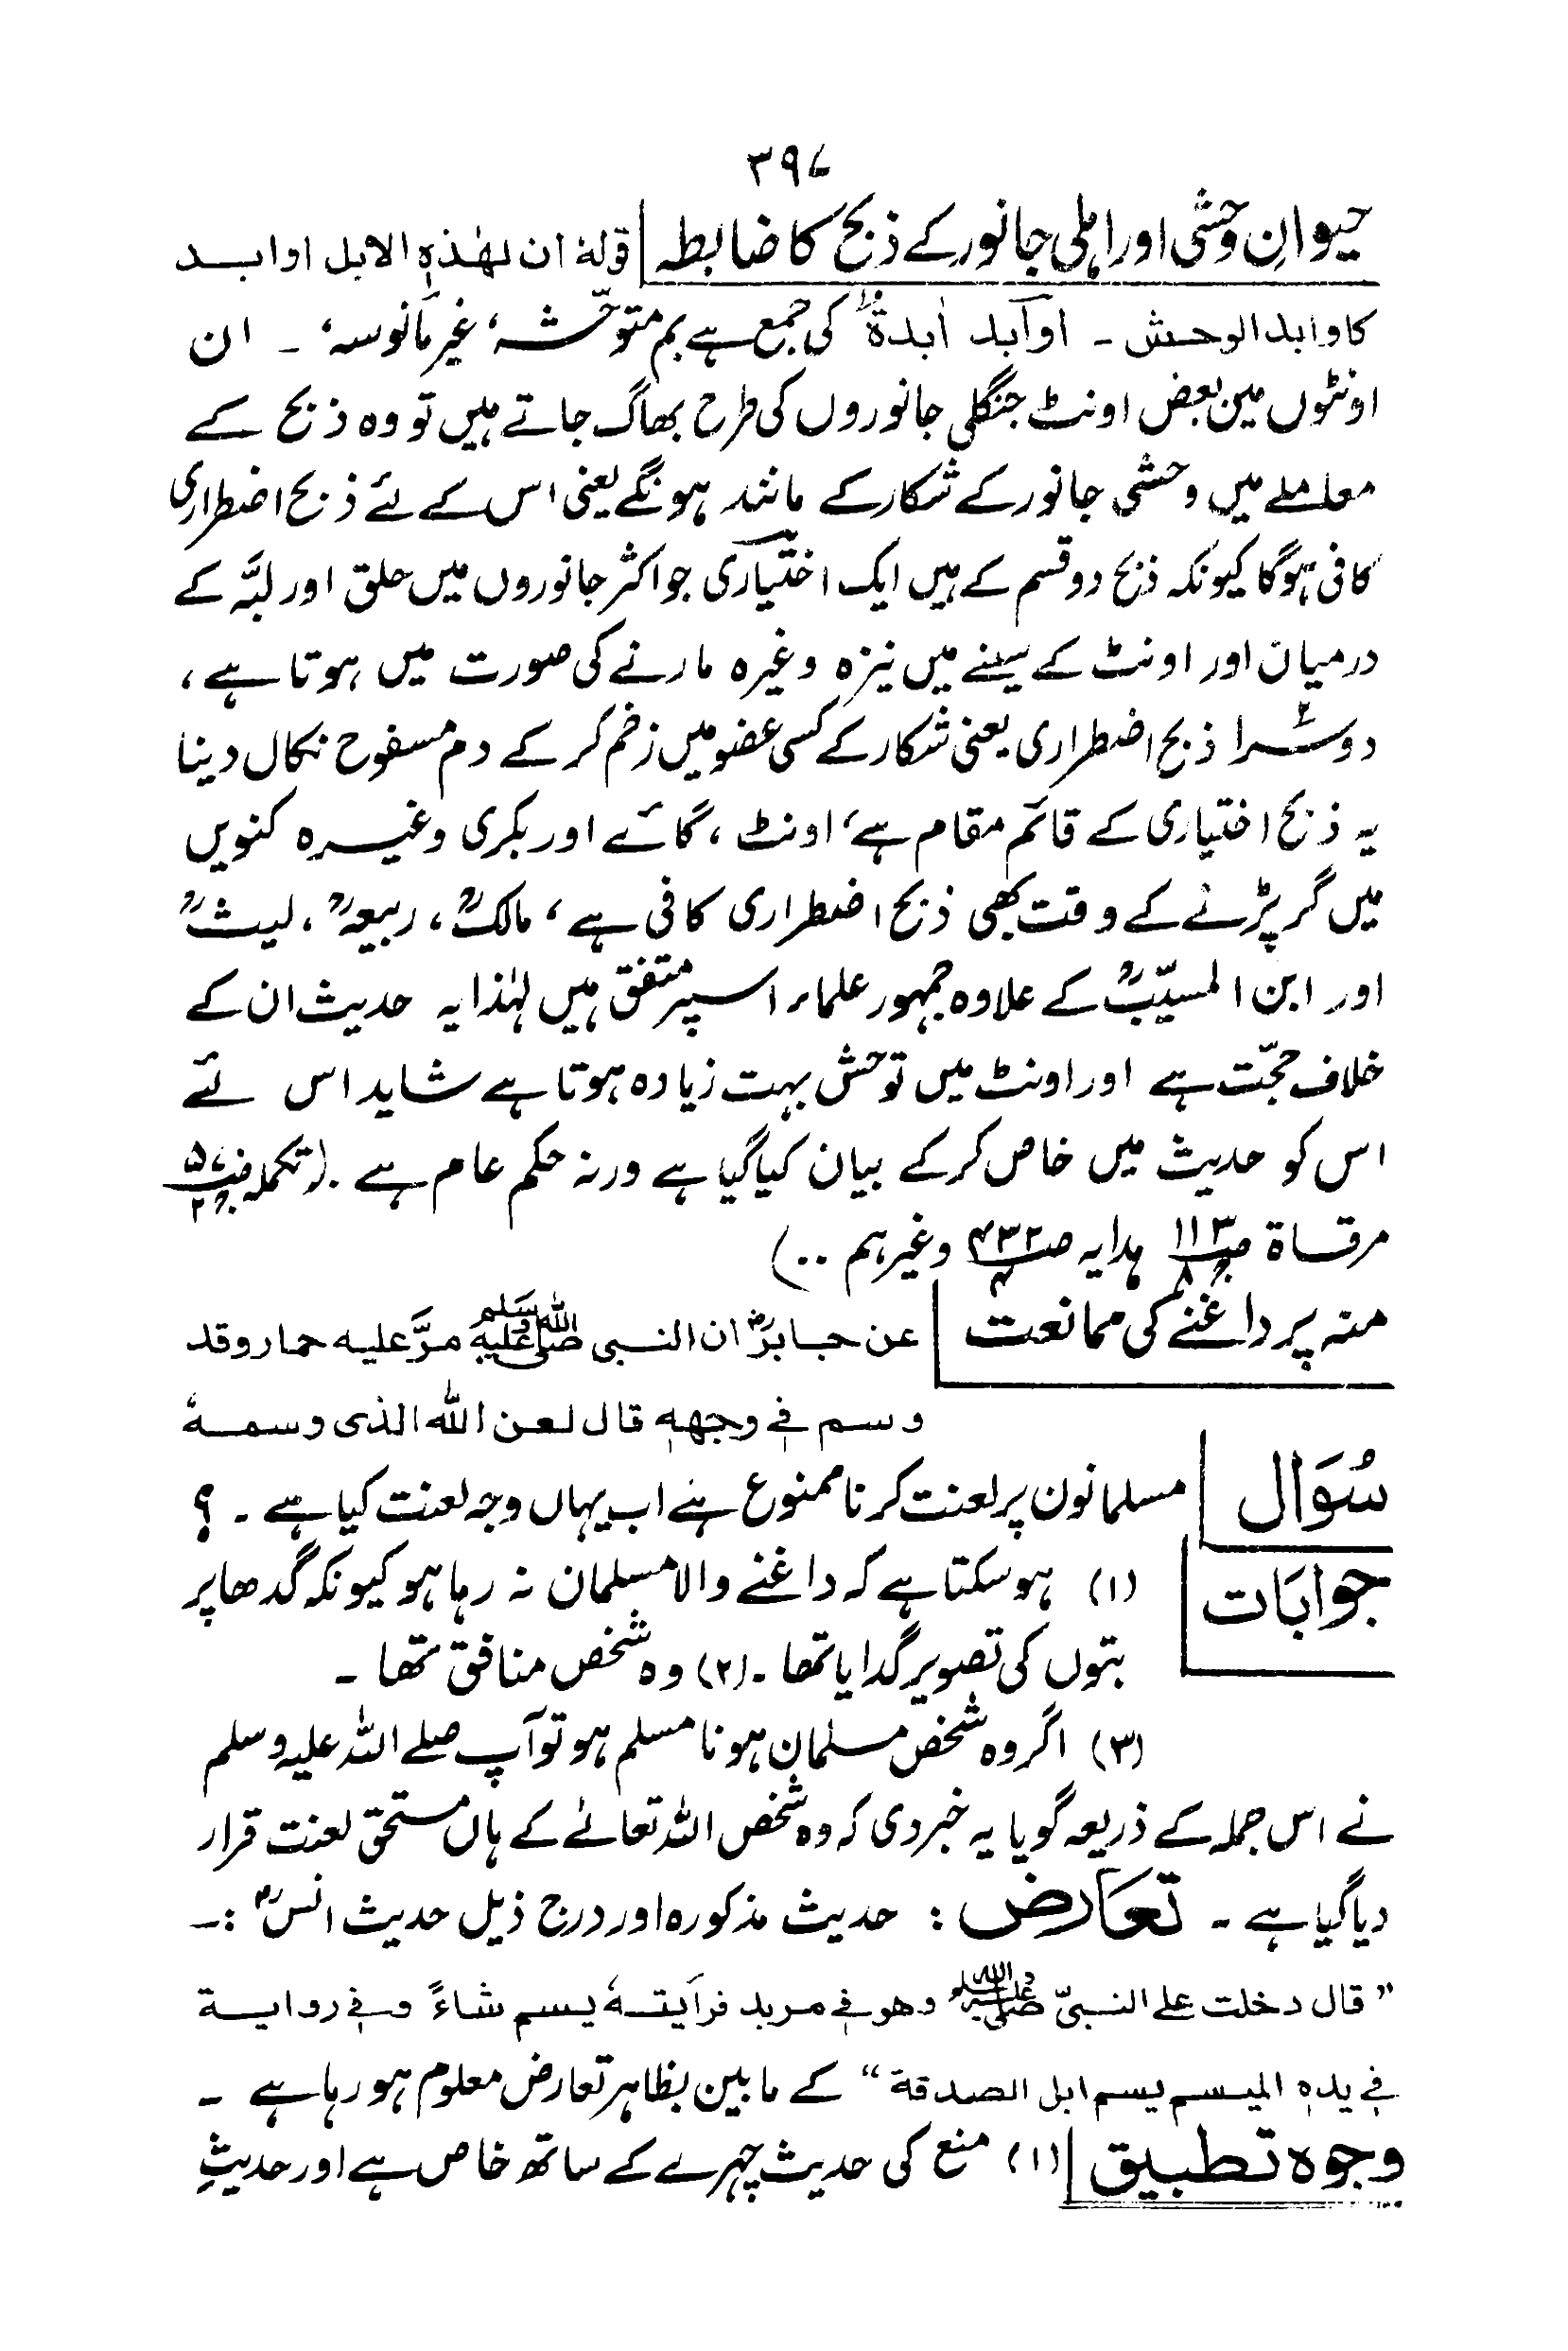 ۳۹۷
حیوانِ وحشی اور اہلی جانور کے ذبح کا ضابطہ قولہٗ ان لھٰذہِ الابل اوابـد
کاوابد الوحش ۔ اوآبد اٰبدۃٌ کی جمع ہے بم متوحّشہ، غیر مَانوسہ، ۔ ان
اونٹوں مین بعض اونٹ جنگلی جانوروں کی طرح بھاگ جاتے ہیں تو وہ ذبح کے
معاملے میں وحشی جانور کے شکار کے مانند ہونگے یعنی اس کے لئے ذبح اضطراری
کافی ہوگا کیونکہ ذبح دو قسم کے ہیں ایک اختیاری جو اکثر جانوروں میں حلق اور لبَّہ کے
درمیان اور اونٹ کے سینے میں نیزہ وغیرہ مارنے کی صورت میں ہوتا ہے ،
دوسرا ذبح اضطراری یعنی شکار کے کسی عضو میں زخم کر کے دم مسفوح نکال دینا
یہ ذبح اختیاری کے قائم مقام ہے، اونٹ ، گائے اور بکری وغیرہ کنویں
میں گر پڑنے کے وقت بھی ذبح اضطراری کافی ہے ، مالکؒ ، ربیعہؒ ، لیثؒ
اور ابن المسیّبؒ کے علاوہ جمہور علماء اسپر متفق ہیں لہٰذا یہ حدیث ان کے
خلاف حجّت ہے اور اونٹ میں توحّش بہت زیادہ ہوتا ہے شاید اس لئے
اس کو حدیث میں خاص کر کے بیان کیا گیا ہے ورنہ حکم عام ہے ۔ (تکملہ
مرقاۃ ص۱۱۳ ج۸ ہدایہ ص۴۳۲ وغیرہم ۰۰)
منہ پر داغنے کی ممانعت عن جابرؓ ان النبی ﷺ مرَّ علیہ حمار وقد
وسم فی وجھہٖ قال لعن اللہ الذی وسمہٗ
سُوَال مسلمانون پر لعنت کرنا ممنوع ہے اب یہاں وجہ لعنت کیا ہے ۔ ؟
جوابَات (۱) ہو سکتا ہے کہ داغنے والا مسلمان نہ رہا ہو کیونکہ گدھا پر
بتوں کی تصویر گدایا تھا ۔ (۲) وہ شخص منافق تھا ۔
(۳) اگر وہ شخص مسلمان ہونا مسلم ہو تو آپ صلے اللہ علیہ وسلم
نے اس جملہ کے ذریعہ گویا یہ خبر دی کہ وہ شخص اللہ تعالےٰ کے ہاں مستحق لعنت قرار
دیا گیا ہے ۔ تعَارض : حدیث مذکورہ اور درج ذیل حدیث انسؓ :۔
" قال دخلت علی النبیّ ﷺ وھو فی مربد فرأیتہٗ یسم شاءً وفی روایۃ
فی یدہٖ المیسم یسم ابل الصدقۃ " کے مابین بظاہر تعارض معلوم ہو رہا ہے ۔
وجوہ تطبیق (۱) منع کی حدیث چہرے کے ساتھ خاص ہے اور حدیثِ